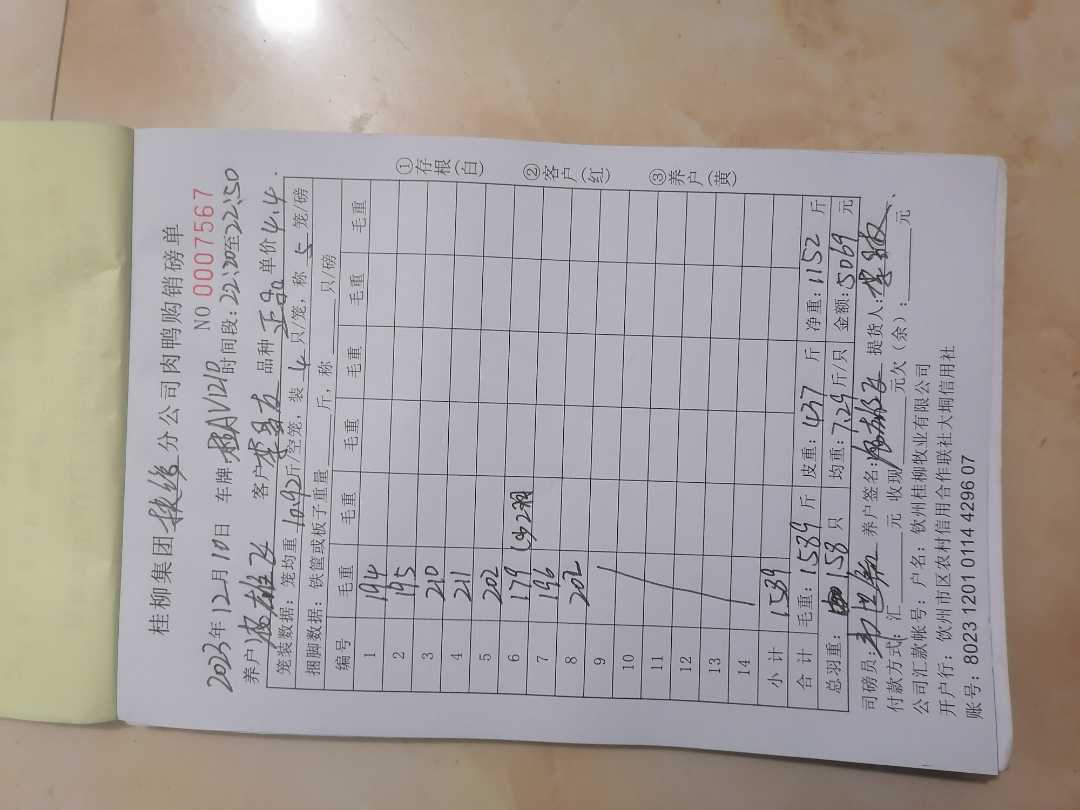 桂柳集团 分公司肉鸭购销磅单
NO 0007567
2023年12月10日 车牌 时间段:22:20至22:50
养户 客户 品种 单价4.4
笼装数据:笼均重10.92斤/空笼,装4只/笼,称5笼/磅
捆脚数据:铁筐或板子重量 斤,称 只/磅
编号 毛重 毛重 毛重 毛重 毛重 毛重
1 194
2 195
3 210
4 211
5 202
6 179 (少2羽)
7 196
8 202
9
10
11
12
13
14
小计 1589
合计 毛重:1589斤 皮重:437斤 净重:1152斤
总羽重: 158只 均重:7.29斤/只 金额:5069元
司磅员: 养户签名: 提货人:
付款方式:汇 元 收现 元欠(余): 元
公司汇款帐号:户名:钦州桂柳牧业有限公司
开户行:钦州市区农村信用合作联社大垌信用社
账号:8023 1201 0114 4296 07
①存根(白)
②客户(红)
③养户(黄)